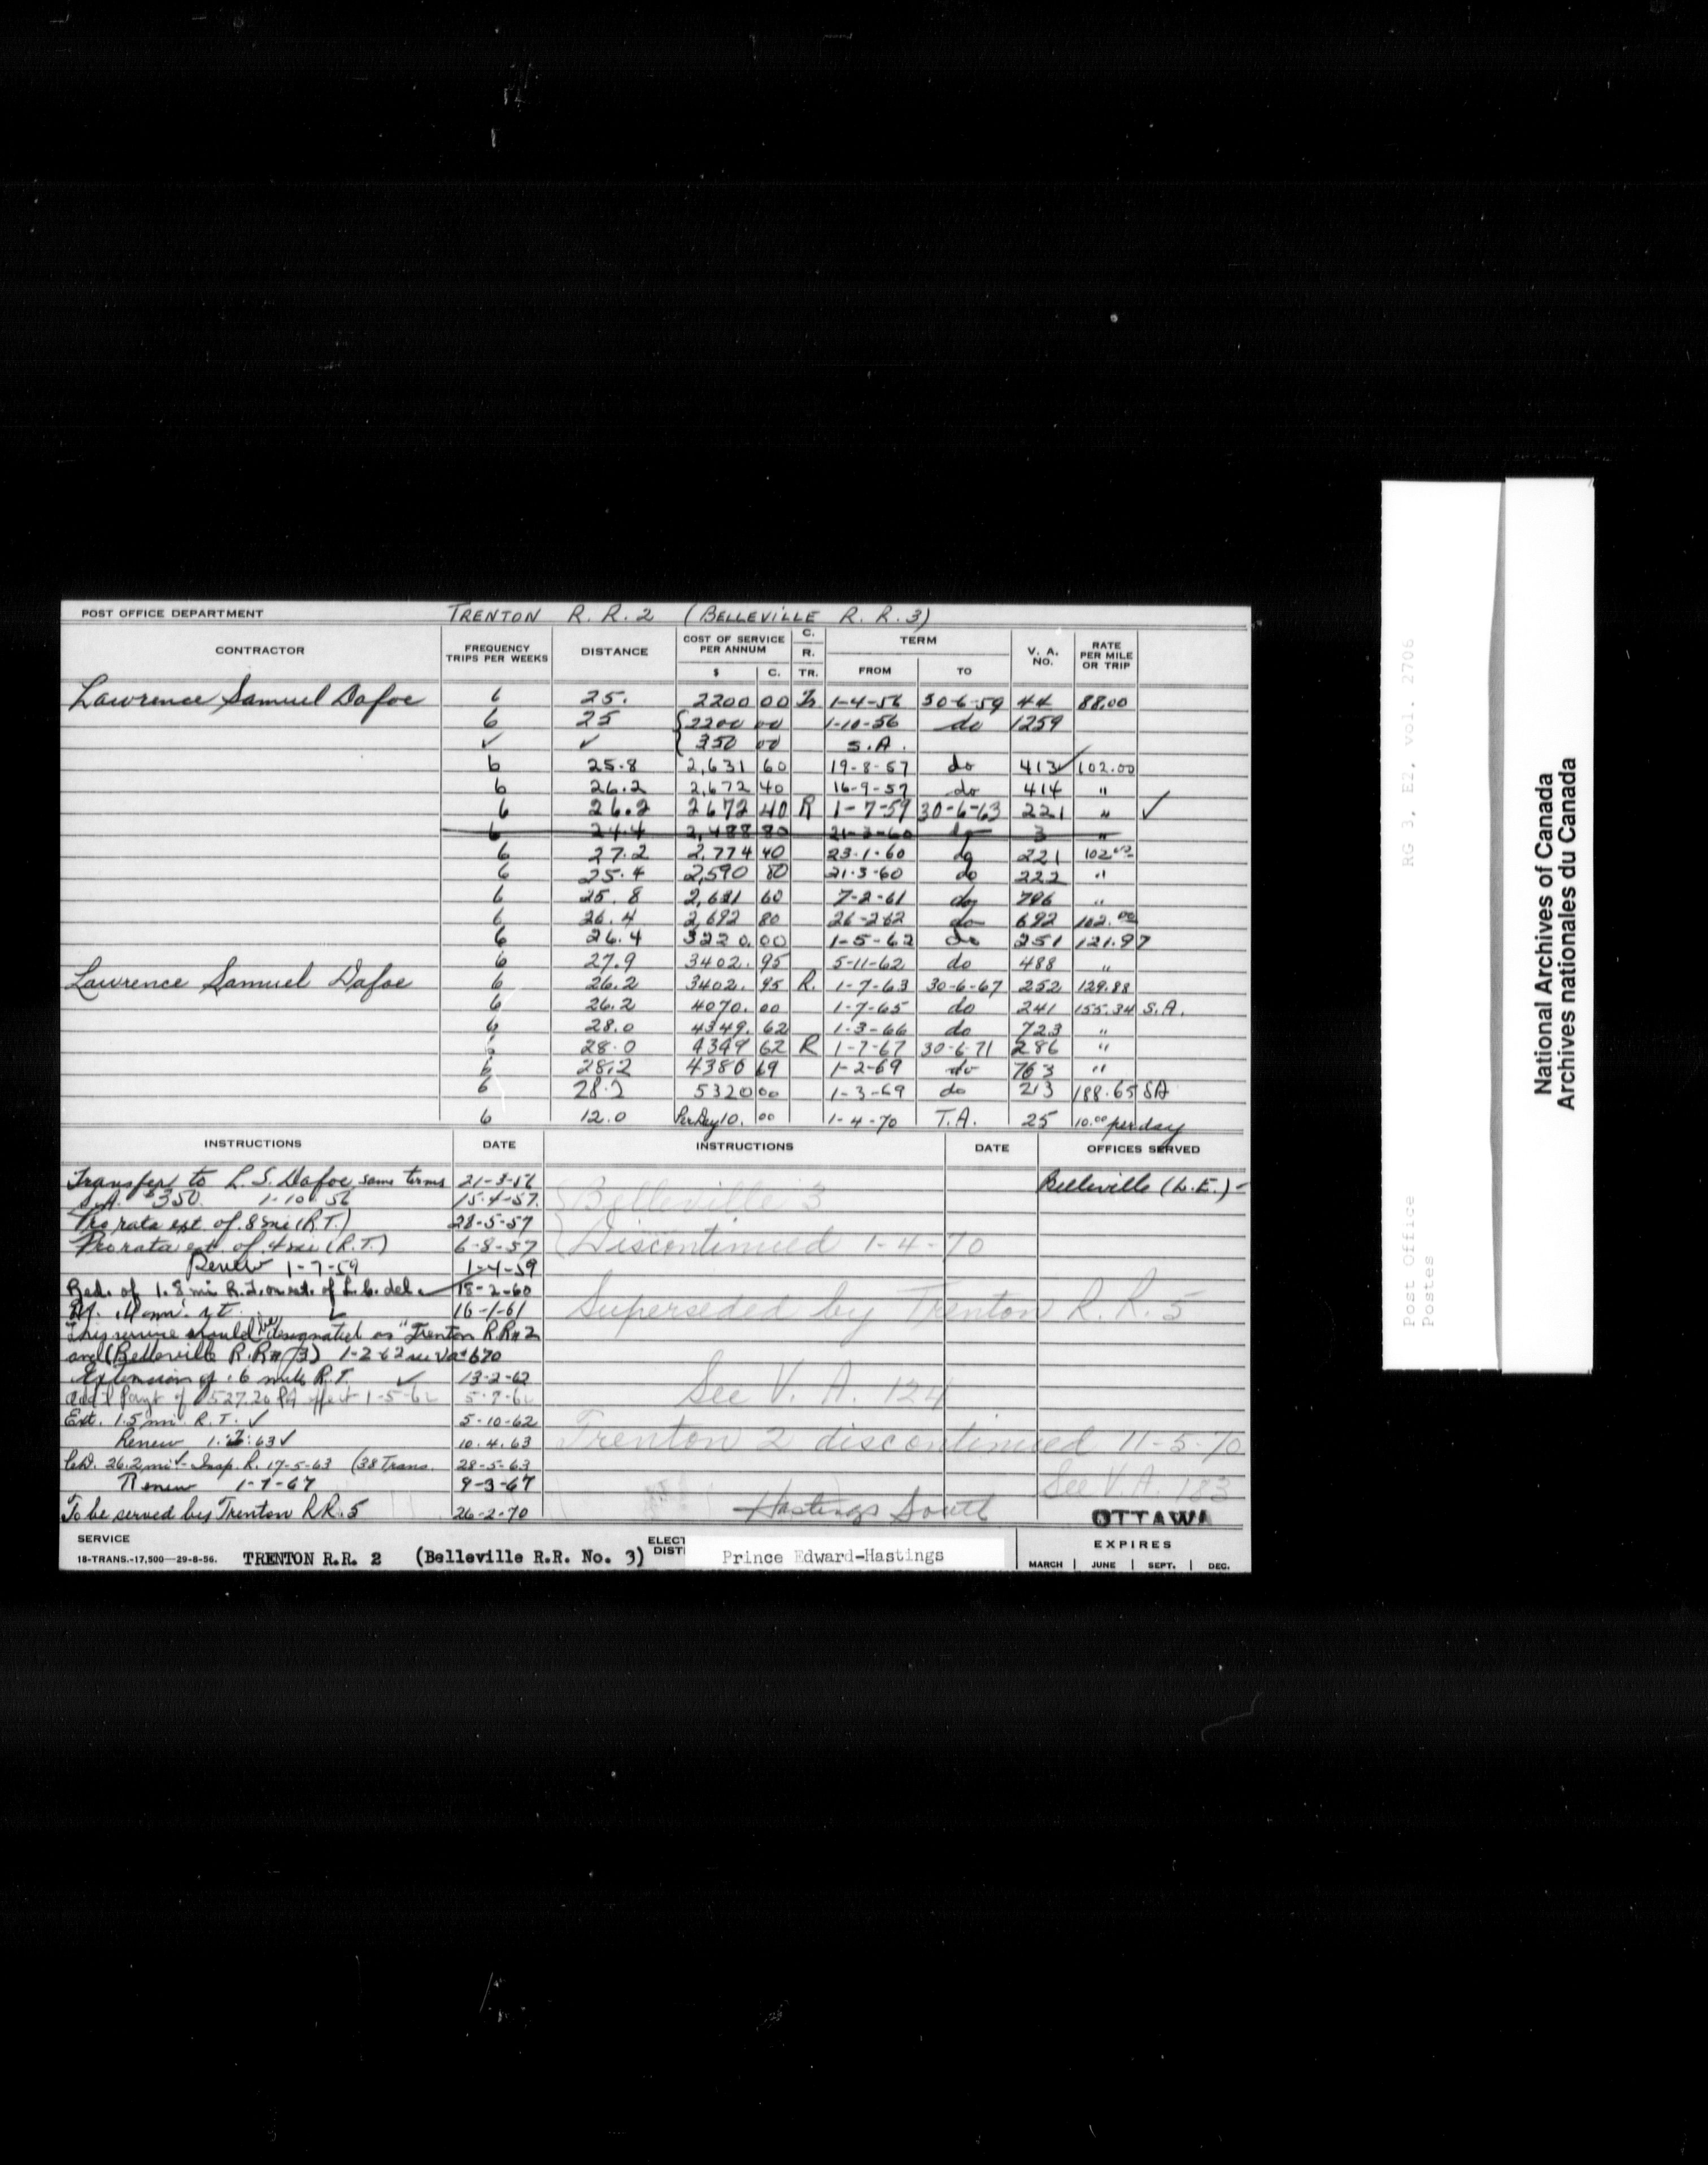 POST OFFICE DEPARTMENT TRENTON R. R. 2 (BELLEVILLE R. R. 3)
CONTRACTOR FREQUENCY TRIPS PER WEEKS DISTANCE COST OF SERVICE PER ANNUM $ C. C. R. TR. TERM FROM TO V. A. NO. RATE PER MILE OR TRIP
Lawrence Samuel Dafoe 6 25. 2200 00 Tr 1-4-56 30-6-59 44 88.00
6 25 {2200 00 1-10-56 do 1259
✓ ✓ { 350 00 S.A.
6 25.8 2,631 60 19-8-57 do 413 ✓ 102.00
6 26.2 2,672 40 16-9-57 do 414 "
6 26.2 2672 40 R 1-7-59 30-6-63 221 " ✓
6 24.4 2,488 80 21-3-60 do 3 "
6 27.2 2,774 40 23-1-60 do 221 102.00
6 25.4 2,590 80 21-3-60 do 222 "
6 25.8 2,631 60 7-2-61 do 706 "
6 26.4 2,692 80 26-2-62 do 692 102.00
6 26.4 3220.00 1-5-62 do 251 121.97
6 27.9 3402.95 5-11-62 do 488 "
Lawrence Samuel Dafoe 6 26.2 3402.95 R. 1-7-63 30-6-67 252 129.88
6 26.2 4070.00 1-7-65 do 241 155.34 S.A.
6 28.0 4349.62 1-3-66 do 723 "
6 28.0 4349 62 R 1-7-67 30-6-71 286 "
6 28.2 4380 69 1-2-69 do 763 "
6 28.2 5320 00 1-3-69 do 213 188.65 SA
6 12.0 Per Day 10.00 1-4-70 T.A. 25 10.00 per day
INSTRUCTIONS DATE INSTRUCTIONS DATE OFFICES SERVED
Transfer to L. S. Dafoe, same terms 21-3-56 Belleville (L.E.) -
S.A. $350. 1-10-56 15-4-57. Belleville 3
Pro rata ext. of .8 mi (R.T.) 28-5-57
Pro rata ext. of .4 mi (R.T.) 6-8-57 Discontinued 1-4-70
Renew 1-7-59 1-4-59
Red. of 1.8 mi R.T. on est. of L.C. del. ✓ 18-2-60
16-1-61 Superseded by Trenton R. R. 5
This service should be designated as "Trenton R.R # 2
and (Belleville R.R # 3) 1-2-62 see Va # 670
Extension of .6 mile R.T. ✓ 13-2-62 See V. A. 124
Add'l Paymt of 527.20 PA effect 1-5-62 5-7-62
Ext. 1.5 mi. R.T. ✓ 5-10-62
Renew 1.7.63 ✓ 10.4.63 Trenton 2 discontinued 11-5-70
26.2 mi - Insp. R. 17-5-63 (38 Trans. 28-5-63
Renew 1-7-67 9-3-67 See V. A. 183
To be served by Trenton RR.5 26-2-70 Hastings South OTTAWA
SERVICE ELECT DIST Prince Edward-Hastings EXPIRES
18-TRANS.-17,500—29-8-56. TRENTON R.R. 2 (Belleville R.R. No. 3) MARCH JUNE SEPT. DEC.
RG 3, E2, vol. 2706
Post Office
Postes
National Archives of Canada
Archives nationales du Canada